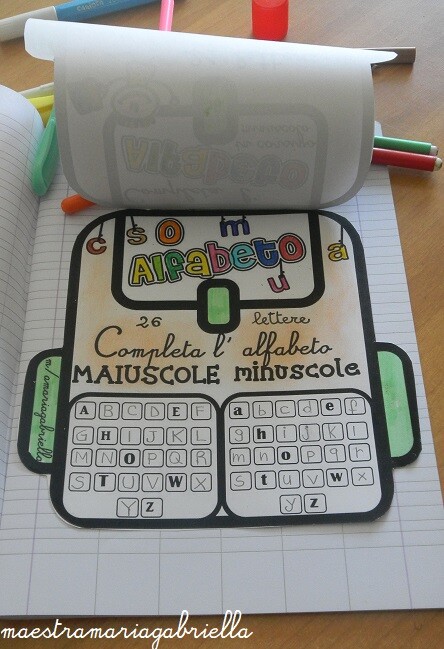 c s o m u a
Alfabeto
26 lettere
Completa l' alfabeto
MAIUSCOLE minuscole
A B C D E F
G H I J K L
M N O P Q R
S T U V W X
Y Z
a b c d e f
g h i j k l
m n o p q r
s t u v w x
y z
m/amariagabriella
maestramariagabriella